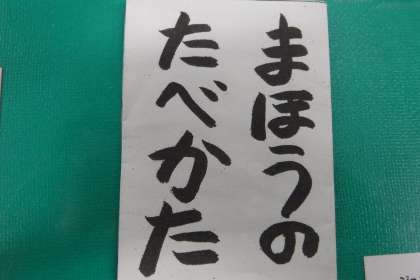 まほうの
たべかた